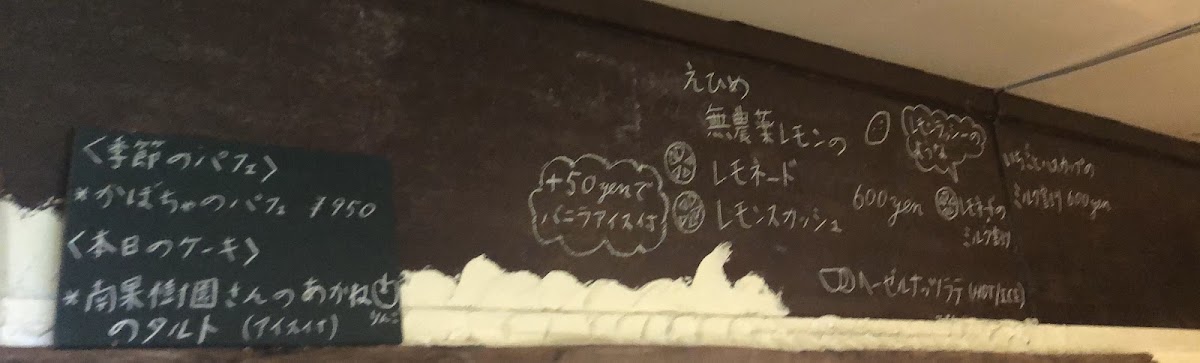 <季節のパフェ>
*かぼちゃのパフェ ¥950
<本日のケーキ>
*南果樹園さんのあかね
りんご
のタルト (アイス付)
えひめ
無農薬レモンの
レモネード
レモンスカッシュ
600yen
+50yenで
バニラアイス付
レモンラッシーの
ような
レモネードの
ミルク割り
ミルク割り 600yen
ヘーゼルナッツラテ (HOT/ICE)